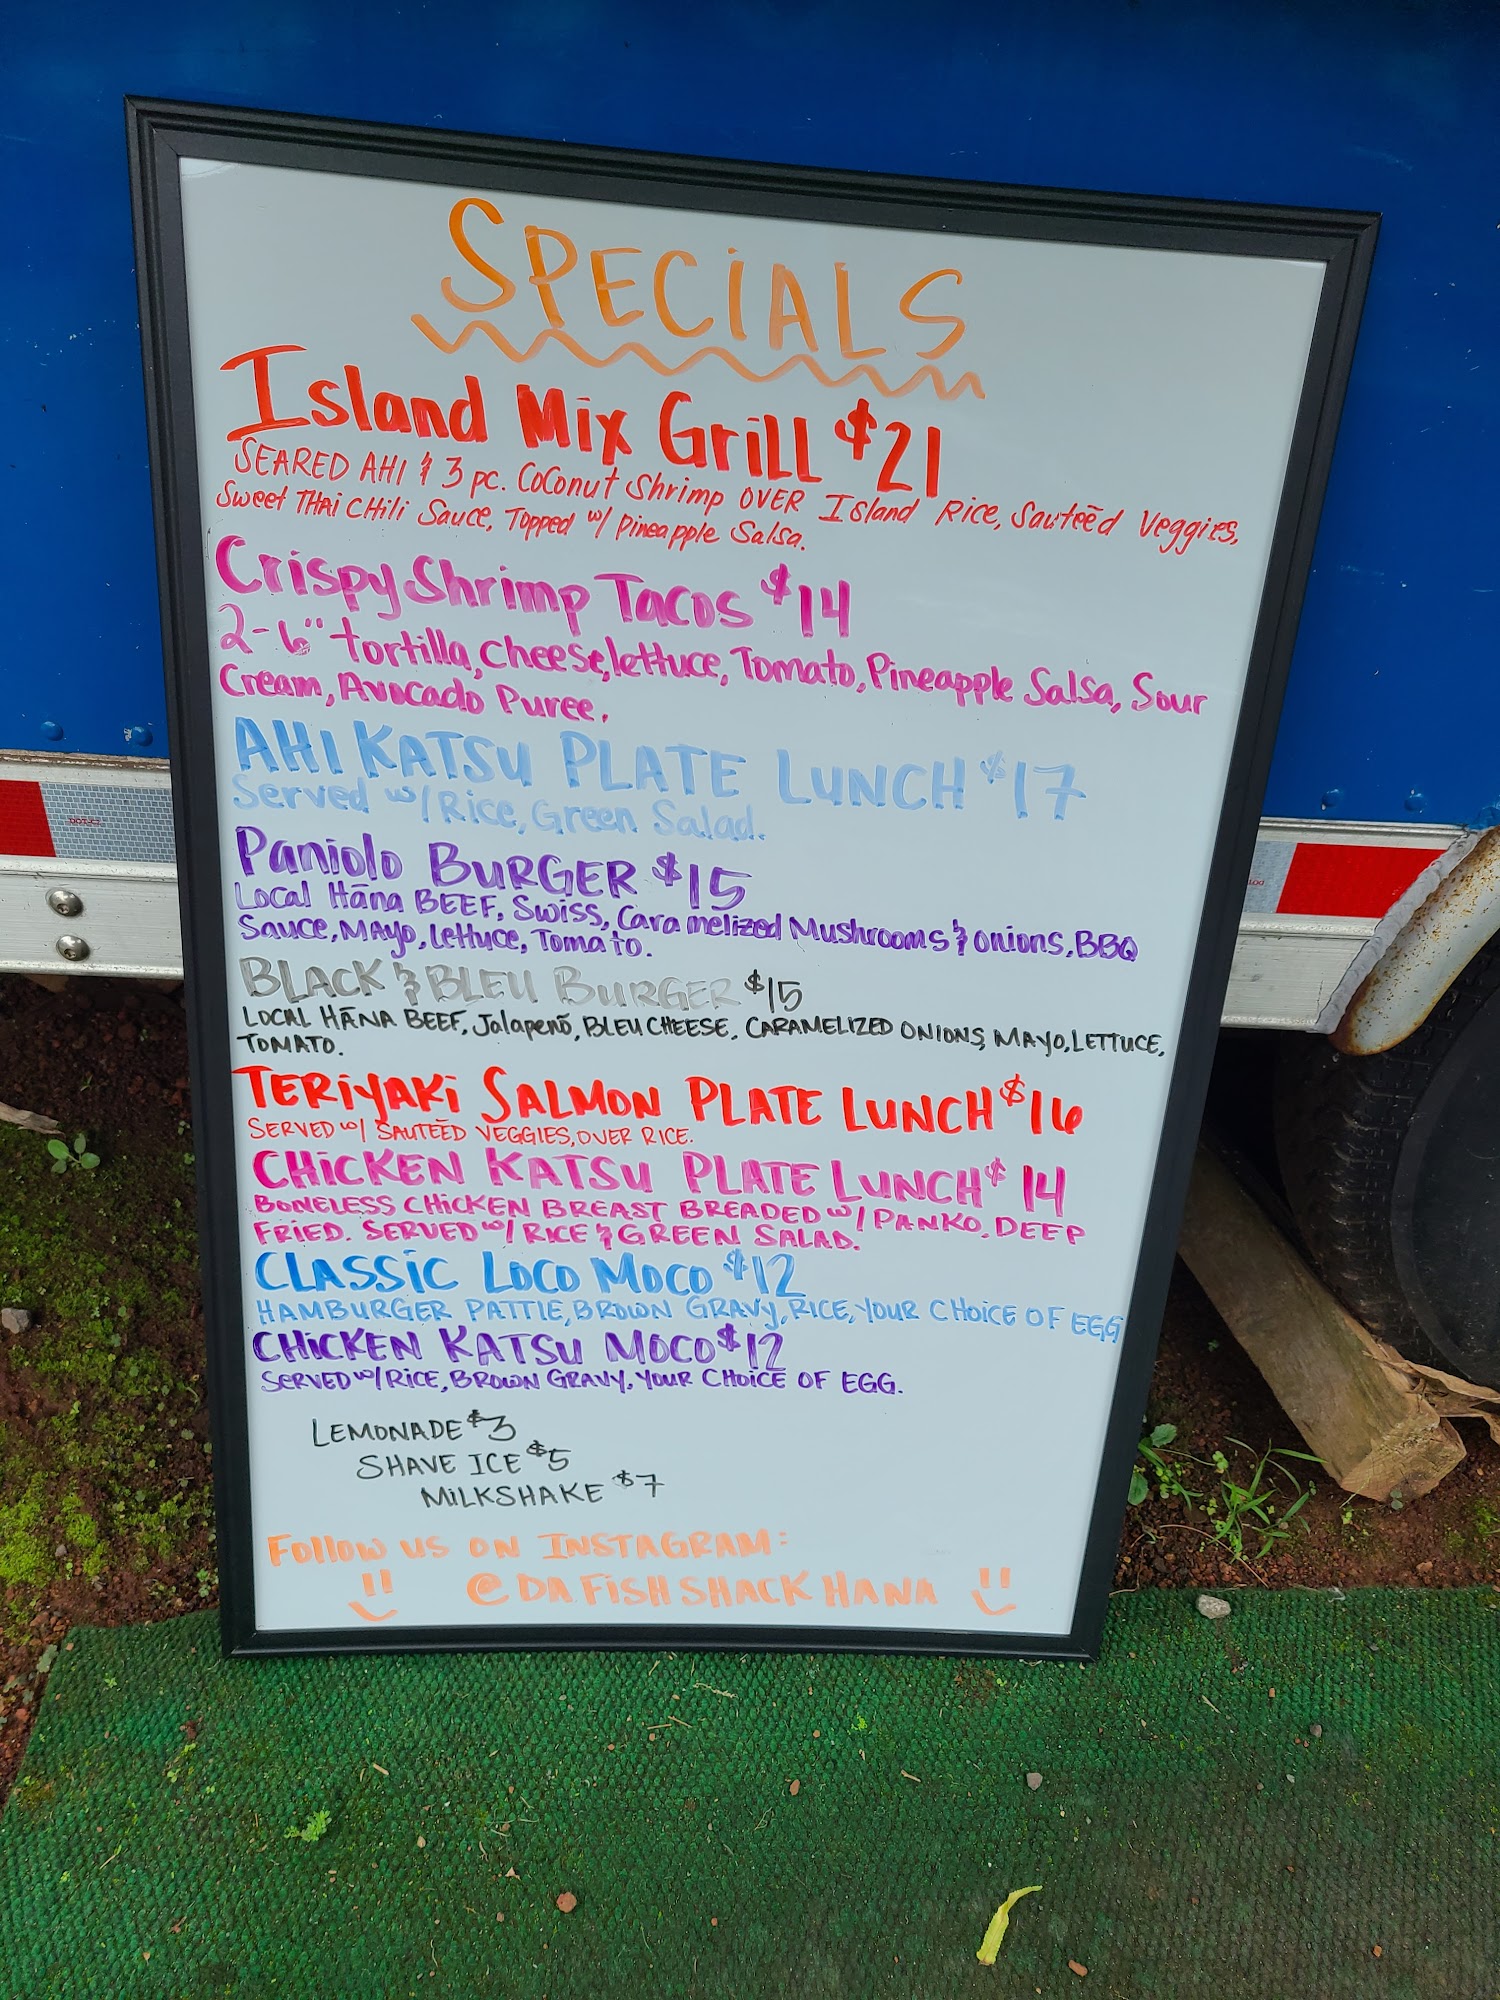 SPECiALS
Island Mix Grill $21
SEARED AHI & 3 pc. Coconut Shrimp OVER Island Rice, Sauteēd Veggies,
Sweet THAi CHili Sauce, Topped w/ Pineapple Salsa.
Crispy Shrimp Tacos $14
2-6" tortilla, cheese, lettuce, Tomato, Pineapple Salsa, Sour
Cream, Avocado Puree.
AHI KATSU PLATE LUNCH $17
Served w/ Rice, Green Salad.
Paniolo BURGER $15
Local Hāna BEEF, Swiss, Caramelized Mushrooms & Onions, BBQ
Sauce, MAyo, Lettuce, Tomato.
BLACK & BLEU BURGER $15
LOCAL HĀNA BEEF, Jalapenō, BLEU CHEESE, CARAMELIZED ONIONS, MAYO, LETTUCE,
TOMATO.
TERiYAKi SALMON PLATE LUNCH $16
SERVED w/ SAUTEĒD VEGGIES, OVER RICE.
CHiCKEN KATSU PLATE LUNCH $14
BONELESS CHiCKEN BREAST BREADED w/ PANKO, DEEP
FRIED. SERVED w/ RICE & GREEN SALAD.
CLASSiC LOCO MOCO $12
HAMBURGER PATTIE, BROWN GRAVY, RICE, YOUR CHOICE OF EGG
CHiCKEN KATSU MOCO $12
SERVED w/ RICE, BROWN GRAVY, YOUR CHOICE OF EGG.
LEMONADE $3
SHAVE ICE $5
MiLKSHAKE $7
Follow us on INSTAGRAM:
@DA FiSH SHACK HANA